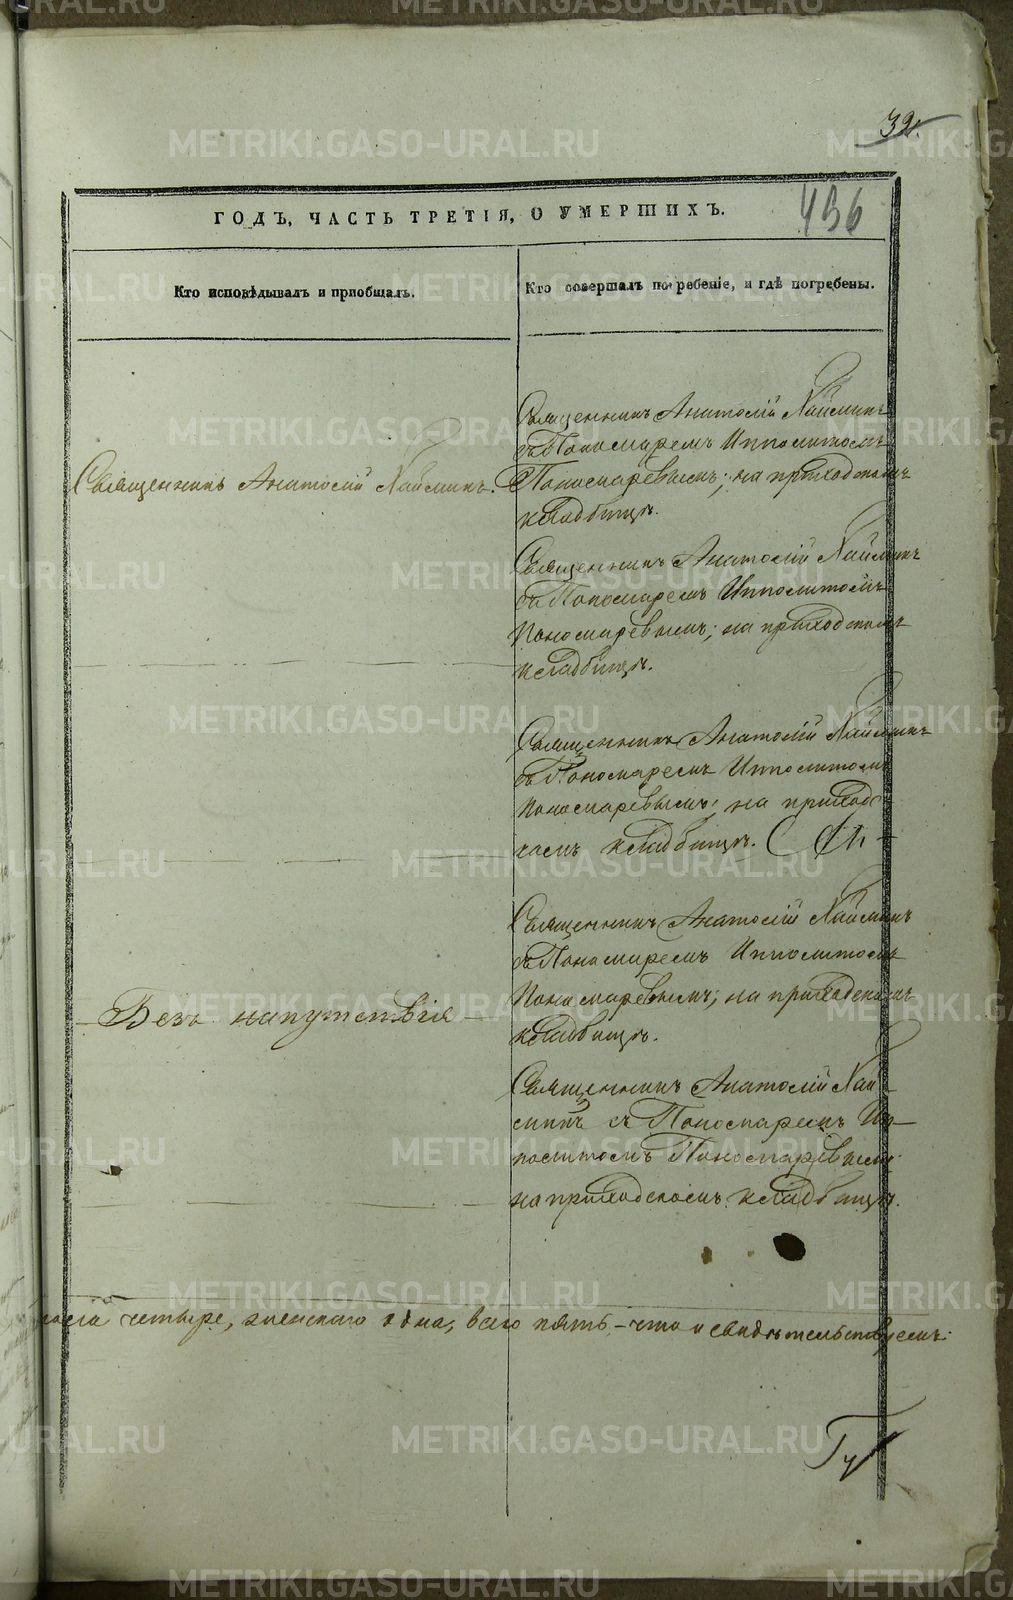 39.
436
ГОДЪ, ЧАСТЬ ТРЕТІЯ, О УМЕРШИХЪ.
Кто исповѣдывалъ и приобщалъ.
Кто совершалъ погребеніе, и гдѣ погребены.
Священникъ Анатолій Хаймин.
Священникъ Анатолій Хайминъ
съ Пономаремъ Ипполитомъ
Пономаревымъ; на приходскомъ
кладбищѣ.
Священникъ Анатолій Хайминъ
съ Пономаремъ Ипполитомъ
Пономаревымъ; на приходскомъ
кладбищѣ.
Священникъ Анатолій Хайминъ
съ Пономаремъ Ипполитомъ
Пономаревымъ; на приход
скомъ кладбищѣ.
Безъ напутствія
Священникъ Анатолій Хайминъ
съ Пономаремъ Ипполитомъ
Пономаревымъ; на приходскомъ
кладбищѣ.
Священникъ Анатолій Хай-
минъ съ Пономаремъ Ип-
политомъ Пономаревымъ
на приходскомъ кладбищѣ.
четыре, женскаго одна, всего пять – что и свидѣтельствуемъ:
METRIKI.GASO-URAL.RU